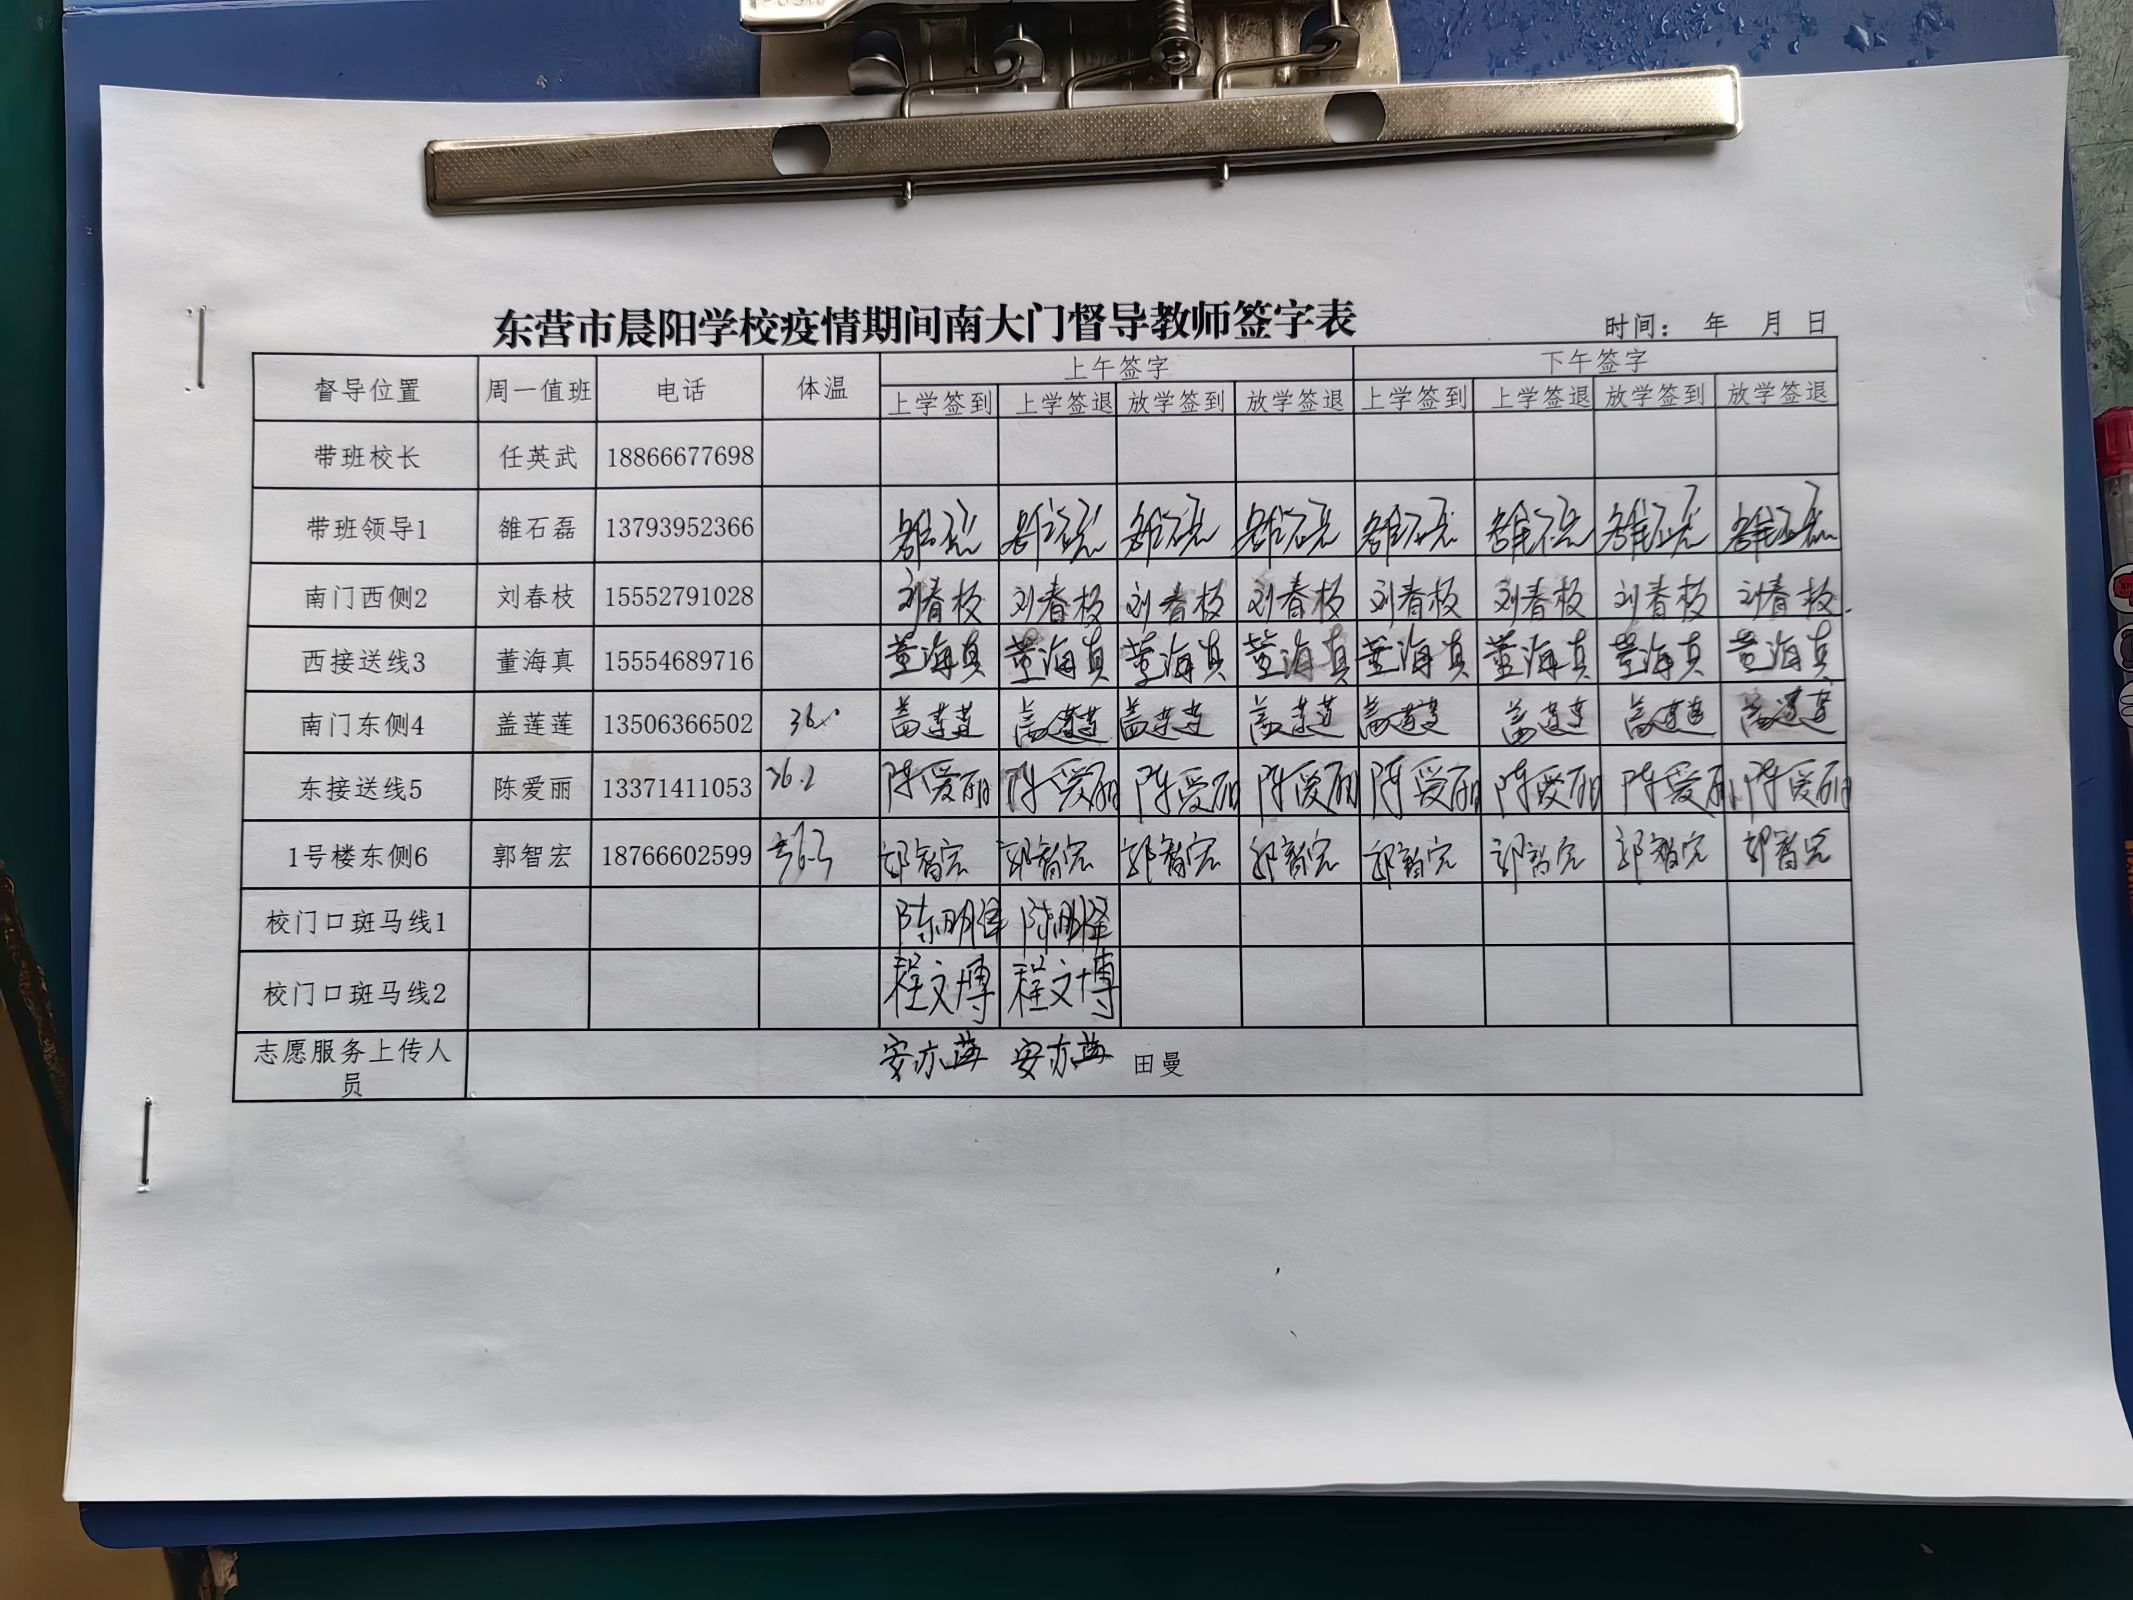 东营市晨阳学校疫情期间南大门督导教师签字表
时间： 年 月 日
督导位置 周一值班 电话 体温 上午签字 下午签字
上学签到 上学签退 放学签到 放学签退 上学签到 上学签退 放学签到 放学签退
带班校长 任英武 18866677698
带班领导1 雒石磊 13793952366 雒石磊 雒石磊 雒石磊 雒石磊 雒石磊 雒石磊 雒石磊 雒石磊
南门西侧2 刘春枝 15552791028 刘春枝 刘春枝 刘春枝 刘春枝 刘春枝 刘春枝 刘春枝 刘春枝
西接送线3 董海真 15554689716 董海真 董海真 董海真 董海真 董海真 董海真 董海真 董海真
南门东侧4 盖莲莲 13506366502 盖莲莲 盖莲莲 盖莲莲 盖莲莲 盖莲莲 盖莲莲 盖莲莲 盖莲莲
东接送线5 陈爱丽 13371411053 36.2 陈爱丽 陈爱丽 陈爱丽 陈爱丽 陈爱丽 陈爱丽 陈爱丽 陈爱丽
1号楼东侧6 郭智宏 18766602599 36.3 郭智宏 郭智宏 郭智宏 郭智宏 郭智宏 郭智宏 郭智宏 郭智宏
校门口斑马线1 陈明泽 陈明泽
校门口斑马线2 程文博 程文博
志愿服务上传人 安亦 安亦 田曼
员